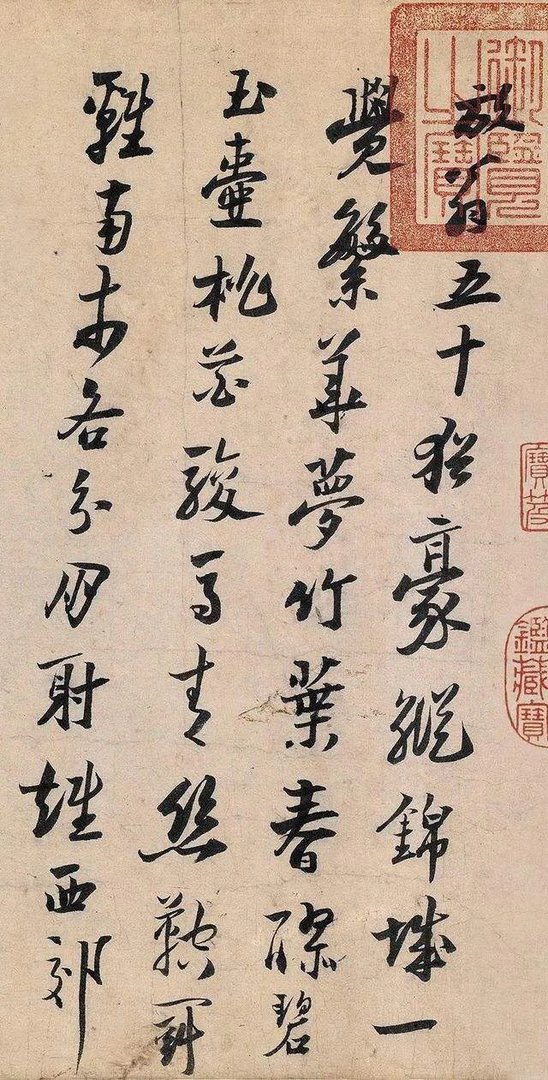 御覽之寶
放翁五十猶豪縱錦城一
覺繁華夢竹葉春醪碧
玉壺桃花駿馬青絲鞚鬭
雞南市各分朋射雉西郊
寶笈
鑑藏寶